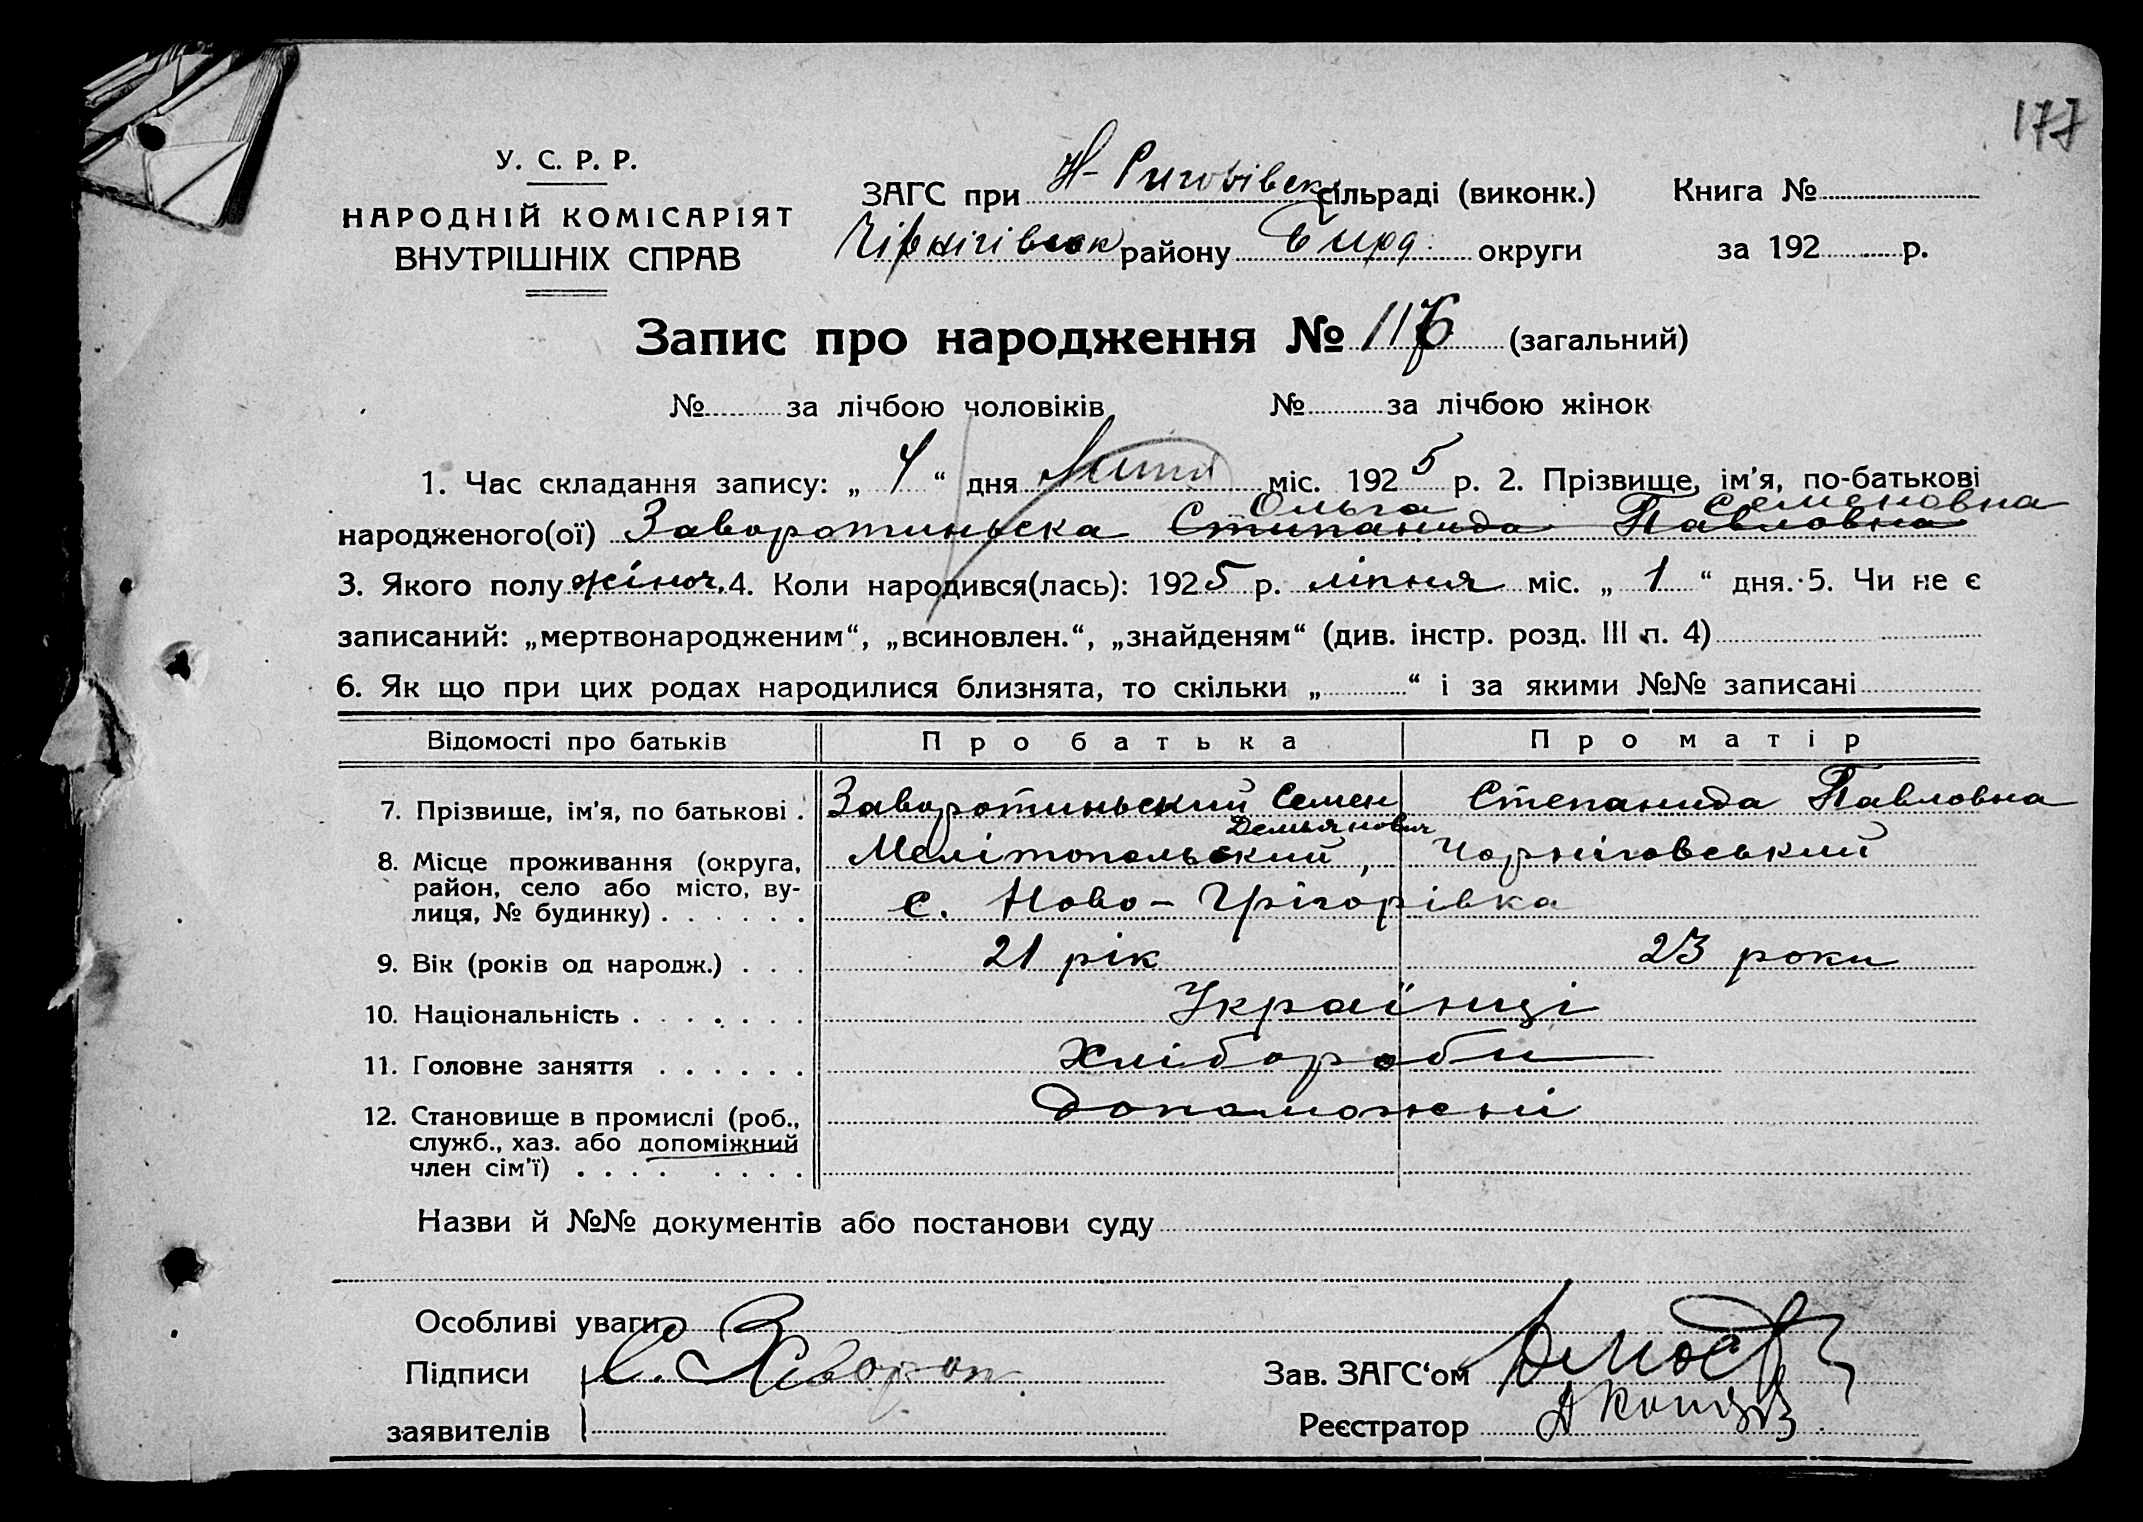 177
У. С. Р. Р.
НАРОДНІЙ КОМІСАРІЯТ
ВНУТРІШНІХ СПРАВ
ЗАГС при Н- сільраді (виконк.) Книга №
району округи за 192 р.
Запис про народження № 116 (загальний)
№ за лічбою чоловіків № за лічбою жінок
1. Час складання запису: „ 4 “ дня міс. 1925 р. 2. Прізвище, ім’я, по-батькові
Ольга Семеновна
народженого(ої) Заворотиньска Степанида Павловна
3. Якого полу жіноч. 4. Коли народився(лась): 1925 р. ліпня міс. „ 1 “ дня. 5. Чи не є
записаний: „мертвонародженим“, „всиновлен.“, „знайденям“ (див. інстр. розд. III п. 4)
6. Як що при цих родах народилися близнята, то скільки „ “ і за якими №№ записані
Відомості про батьків Про батька Про матір
7. Прізвище, ім’я, по батькові . Заворотиньский Семен Степанида Павловна
Демьянович
8. Місце проживання (округа, Мелітопольский, Чорніговський
район, село або місто, ву-
лиця, № будинку) . . . . . . с. Ново-Грігорівка
9. Вік (років од народж.) . . . 21 рік 23 роки
10. Національність . . . . . . . Українці
11. Головне заняття . . . . . . Хлібороби
12. Становище в промислі (роб., допоможні
служб., хаз. або допоміжний
член сім’ї) . . . . . . . .
Назви й №№ документів або постанови суду
Особливі уваги
Підписи С. Заворот. Зав. ЗАГС‘ом
заявителів Реєстратор